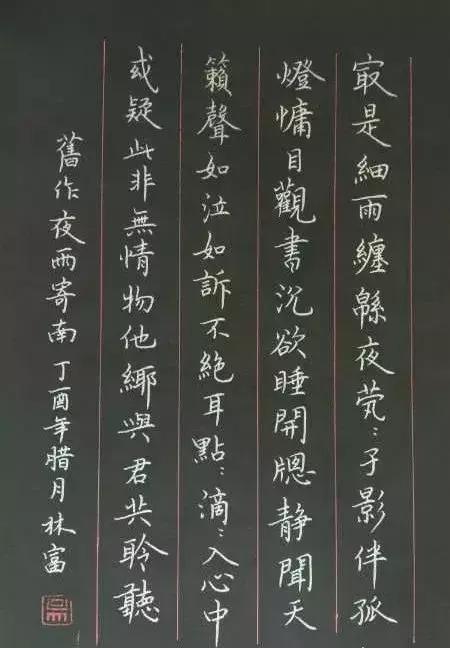 㝡是細雨纏緜夜茕:孑影伴孤
燈慵目觀書沉欲睡開牕静聞天
籟聲如泣如訴不絶耳點:滴:入心中
或疑此非無情物他鄉與君共聆聽
舊作夜雨寄南丁酉年腊月林富